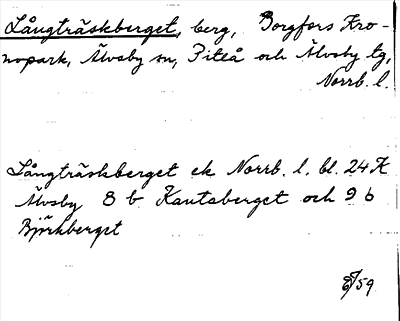 Långträskberget, berg, Borgfors Kro-
nopark, Älvsby sn, Piteå och Älvsby tg,
Norrb. l.
Långträskberget ek Norrb. l. bl. 24 K
Älvsby 8 b Kautaberget och 9 b
Björkberget
/59